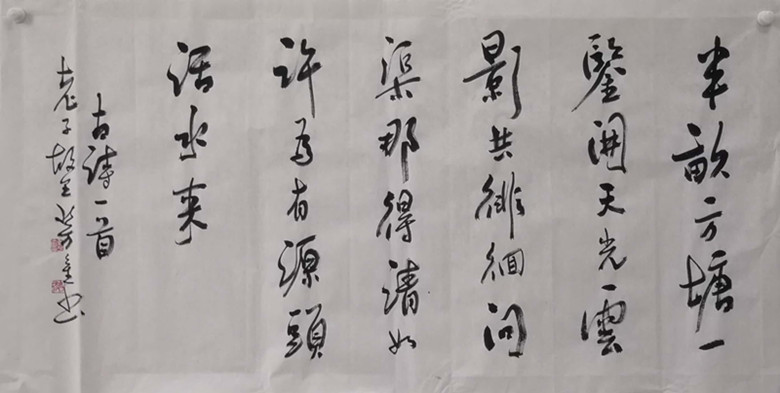 半畝方塘一
鑒開天光雲
影共徘徊問
渠那得清如
許為有源頭
活水来
古詩一首
老子故里